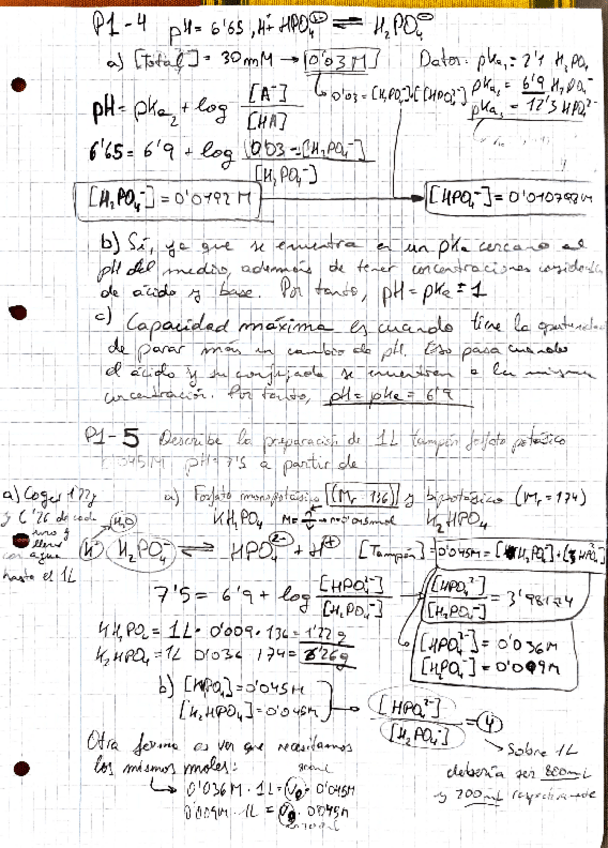 P1-4 pH= 6'65, H⁺ HPO₄²⁻ ⇌ H₂PO₄⁻
a) [Total] = 30 mM → 0'03 M
Datos: pKa₁ = 2'1 H₃PO₄
↳ 0'03 = [H₂PO₄⁻]+[HPO₄²⁻]
pKa₂ = 6'9 H₂PO₄⁻
pKa₃ = 12'3 HPO₄²⁻
pH = pKa₂ + log [A⁻] / [HA]
6'65 = 6'9 + log (0'03 - [H₂PO₄⁻]) / [H₂PO₄⁻]
[H₂PO₄⁻] = 0'0192 M → [HPO₄⁻] = 0'010798 M
b) Sí, ya que se encuentra en un pKa cercano al
pH del medio, además de tener concentraciones
de ácido y base. Por tanto, pH = pKa ± 1
c) Capacidad máxima es cuando tiene la
de parar más un cambio de pH. Eso pasa cuando
el ácido y su conjugada se encuentran a la misma
concentración. Por tanto, pH = pKa = 6'9
P1-5 Describe la preparación de 1L tampón fosfato potásico
0'045M pH 7'5 a partir de
a) Coger 1'22g
y 6'26 de cada
uno y
lleno
con agua
hasta el 1L
a) Fosfato monopotásico (Mr 136) y bipotásico (Mr = 174)
KH₂PO₄
K₂HPO₄
H₂O
H₂PO₄⁻ ⇌ HPO₄²⁻ + H⁺
[Tampón] = 0'045M = [H₂PO₄⁻] + [HPO₄²⁻]
7'5 = 6'9 + log [HPO₄²⁻] / [H₂PO₄⁻] → [HPO₄²⁻] / [H₂PO₄⁻] = 3'98174
KH₂PO₄ = 1L · 0'009 · 136 = 1'22 g
K₂HPO₄ = 1L 0'036 174 = 6'26g
[HPO₄²⁻] = 0'036M
[H₂PO₄⁻] = 0'009M
b) [HPO₄] = 0'045M
[H₂HPO₄] = 0'045M
→ [HPO₄²⁻] / [H₂PO₄⁻] = 4
Otra forma es ver que necesitamos
los mismos moles:
Sobre 1L
debería ser 800ml
y 200ml respectivamente
800ml
0'036M · 1L = V₀ · 0'045M
0'009M · 1L = V₀ · 0'045M